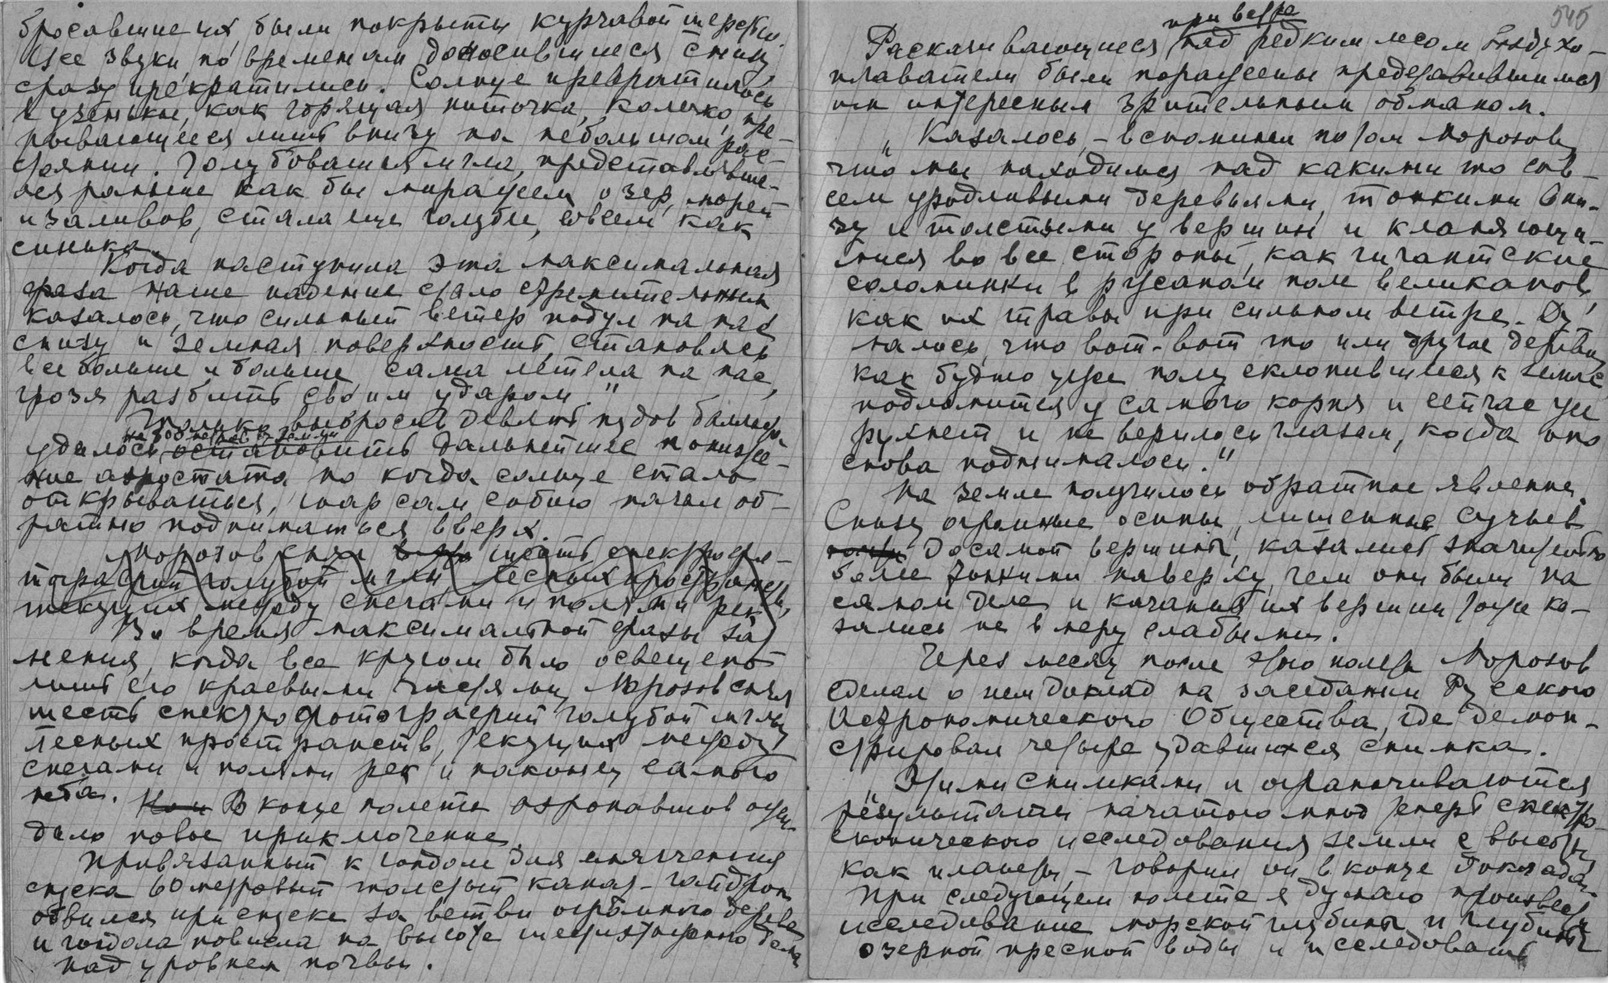 бросавшие их были покрыты курчавой шерстью.
Все звуки, по временам доносившиеся снизу,
сразу прекратились. Солнце превратилось
в узенькое, как горящая ниточка, колечко, пре-
рывающееся лишь внизу на небольшом рас-
стоянии. Голубоватая мгла, представлявша-
яся раньше как бы миражем озер, морей
и заливов, стала еще голубее, совсем как
синька.
Когда наступила эта максимальная
фаза наше падение стало стремительным
казалось, что сильный ветер подул на нас
снизу и земная поверхность, становясь
все больше и больше сама летела на нас,
грозя разбить своим ударом."
Только выбросив девять пудов балласта
удалось остановить дальнейшее пониже-
ние аэростата но когда солнце стало
открываться, шар сам собою начал об-
ратно подниматься вверх.
Морозов снял шесть спектрофо-
тографий голубой мглы лесных пространств,
текущих между снегами и полями рек
Во время максимальной фазы за
мения, когда все кругом было освещено
лишь его краевыми частями, Морозов снял
шесть спектрофотографий голубой мглы
лесных пространств, текущих между
снегами и полями рек и наконец самого
неба.
В конце полета аэронавтов ожи-
дало новое приключение.
Привязанный к гондоле для смягчения
спуска 60 метровый толстый канат – гайдроп
обвился при спуске за ветви огромного дерева
и гондола повисла на высоте шестиэтажного дома
над уровнем почвы.
545
при ветре
Раскачивающиеся над редким лесом воздухо-
плаватели были поражены представившимся
им интересным зрительным обманом.
„Казалось, – вспоминал потом Морозов,
что мы находимся над какими то сов-
сем уродливыми деревьями, тонкими вни-
зу и толстыми у вершин и кланяющи-
мися во все стороны, как гигантские
соломинки в ржаном поле великанов,
как их травы при сильном ветре. Ду-
малось, что вот-вот то или другое дерево,
как будто уже полу склонившееся к земле
подломится у самого корня и сейчас же
рухнет и не верилось глазам, когда оно
снова поднималось."
На земле получилось обратное явление.
Снизу огромные осины, лишенные сучьев
до самой вершины, казались значительно
более тонкими наверху, чем они были на
самом деле и качания их вершин тоже ка-
зались не в меру слабыми.
Через месяц после этого полета Морозов
сделал о нем доклад на заседании Русского
Астрономического Общества, где демон-
стрировал четыре удавшихся снимка.
„Этими снимками и ограничиваются
результаты начатого мной теперь спектро-
скопического исследования земли с высоты
как планеты, – говорил он в конце доклада.
При следующем полете я думаю произвести
исследование морской глубины и глубины
озерной пресной воды и исследовать